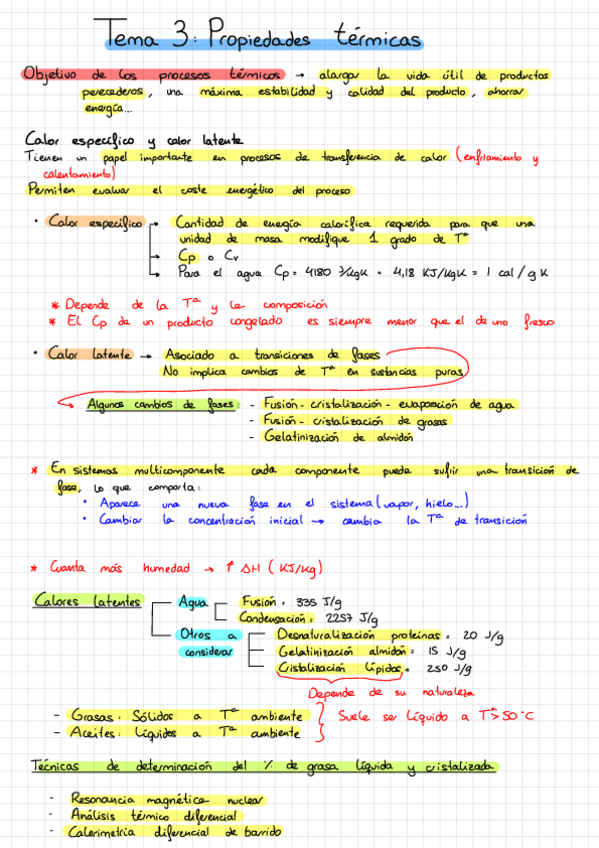 Tema 3: Propiedades térmicas
Objetivo de los procesos térmicos → alargar la vida útil de productos
perecederos, una máxima estabilidad y calidad del producto, ahorrar
energía...
Calor específico y calor latente
Tienen un papel importante en procesos de transferencia de calor (enfriamiento y
calentamiento)
Permiten evaluar el coste energético del proceso
• Calor específico → Cantidad de energía calorífica requerida para que una
unidad de masa modifique 1 grado de Tª
→ Cp o Cv
→ Para el agua Cp = 4180 J/kgK = 4,18 KJ/kgK = 1 cal / g K
* Depende de la Tª y la composición
* El Cp de un producto congelado es siempre menor que el de uno fresco
• Calor latente → Asociado a transiciones de fases
No implica cambios de Tª en sustancias puras
Algunos cambios de fases: - Fusión - cristalización - evaporación de agua
- Fusión - cristalización de grasas
- Gelatinización de almidón
* En sistemas multicomponente cada componente puede sufrir una transición de
fase, lo que comporta:
• Aparece una nueva fase en el sistema (vapor, hielo...)
• Cambiar la concentración inicial → cambia la Tª de transición
* Cuanta más humedad → ↑ ΔH (KJ/Kg)
Calores latentes Agua Fusión = 335 J/g
Condensación = 2257 J/g
Otros a Desnaturalización proteínas = 20 J/g
considerar Gelatinización almidón = 15 J/g
Cistalización lípidos = 250 J/g
Depende de su naturaleza
- Grasas: Sólidos a Tª ambiente } Suele ser líquido a Tª>50°C
- Aceites: Líquidos a Tª ambiente
Técnicas de determinación del % de grasa líquida y cristalizada
- Resonancia magnética nuclear
- Análisis térmico diferencial
- Calorimetría diferencial de barrido